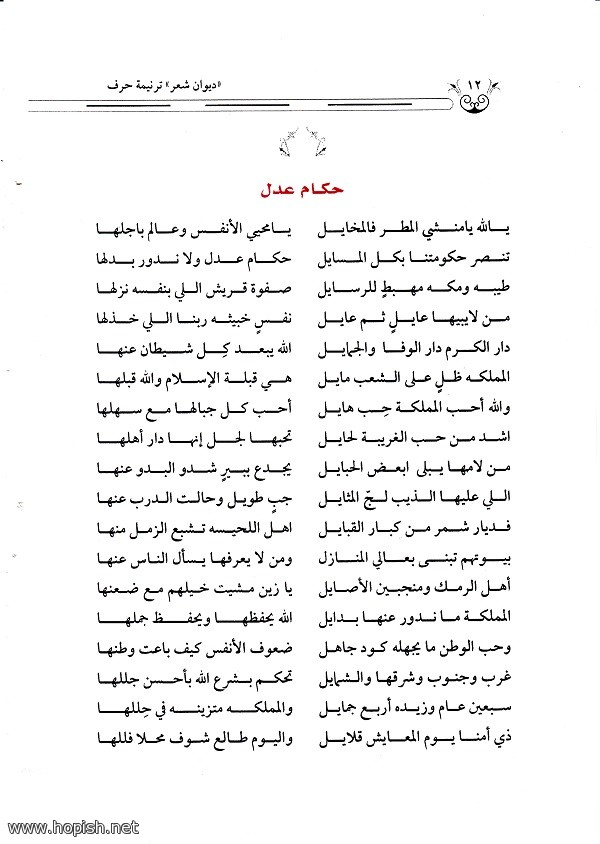 ١٢
«ديوان شعر» ترنيمة حرف
حكام عدل
يالله يامنشي المطر فالمخايل يامحيي الأنفس وعالم باجلها
تنصر حكومتنا بكل المسايل حكام عدل ولا ندور بدلها
طيبه ومكه مهبطٍ للرسايل صفوة قريش اللي بنفسه نزلها
من لايبيها عايلٍ ثم عايل نفسٍ خبيثه ربنا اللي خذلها
دار الكرم دار الوفا والجمايل الله يبعد كِل شيطان عنها
المملكه ظلٍ على الشعب مايل هي قبلة الإسلام والله قبلها
والله أحب المملكة حِب هايل أحب كل جبالها مع سهلها
اشد من حب الغريبة لحايل تحبها لجل إنها دار أهلها
من لامها يبلى ابعض الحبايل يجدع ببيرٍ شدو البدو عنها
اللي عليها الذيب لجّ المثايل جبٍ طويل وحالت الدرب عنها
فديار شمر من كبار القبايل اهل اللحيسه تشبع الزمل منها
بيوتهم تبنى بعالي المنازل ومن لا يعرفها يسأل الناس عنها
أهل الرمك ومنجبين الأصايل يا زين مشيت خيلهم مع ضعنها
المملكة ما ندور عنها بدايل الله يحفظها ويحفظ جملها
وحب الوطن ما يجهله كود جاهل ضعوف الأنفس كيف باعت وطنها
غرب وجنوب وشرقها والشمايل تحكم بشرع الله بأحسن جللها
سبعين عام وزيده أربع جمايل والمملكه متزينه في حِللها
ذي أمنا يوم المعايش قلايل واليوم طالع شوف محلا فللها
www.hopish.net